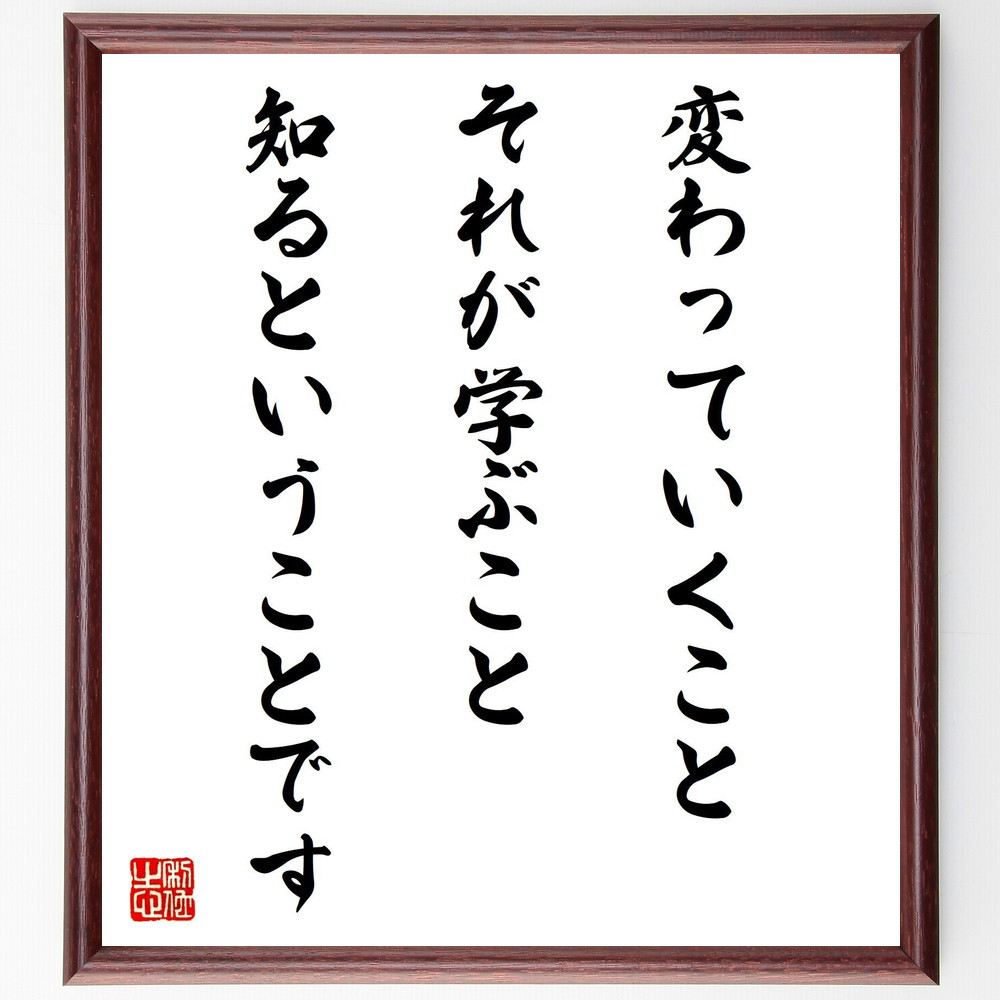 変わっていくこと
それが学ぶこと
知るということです